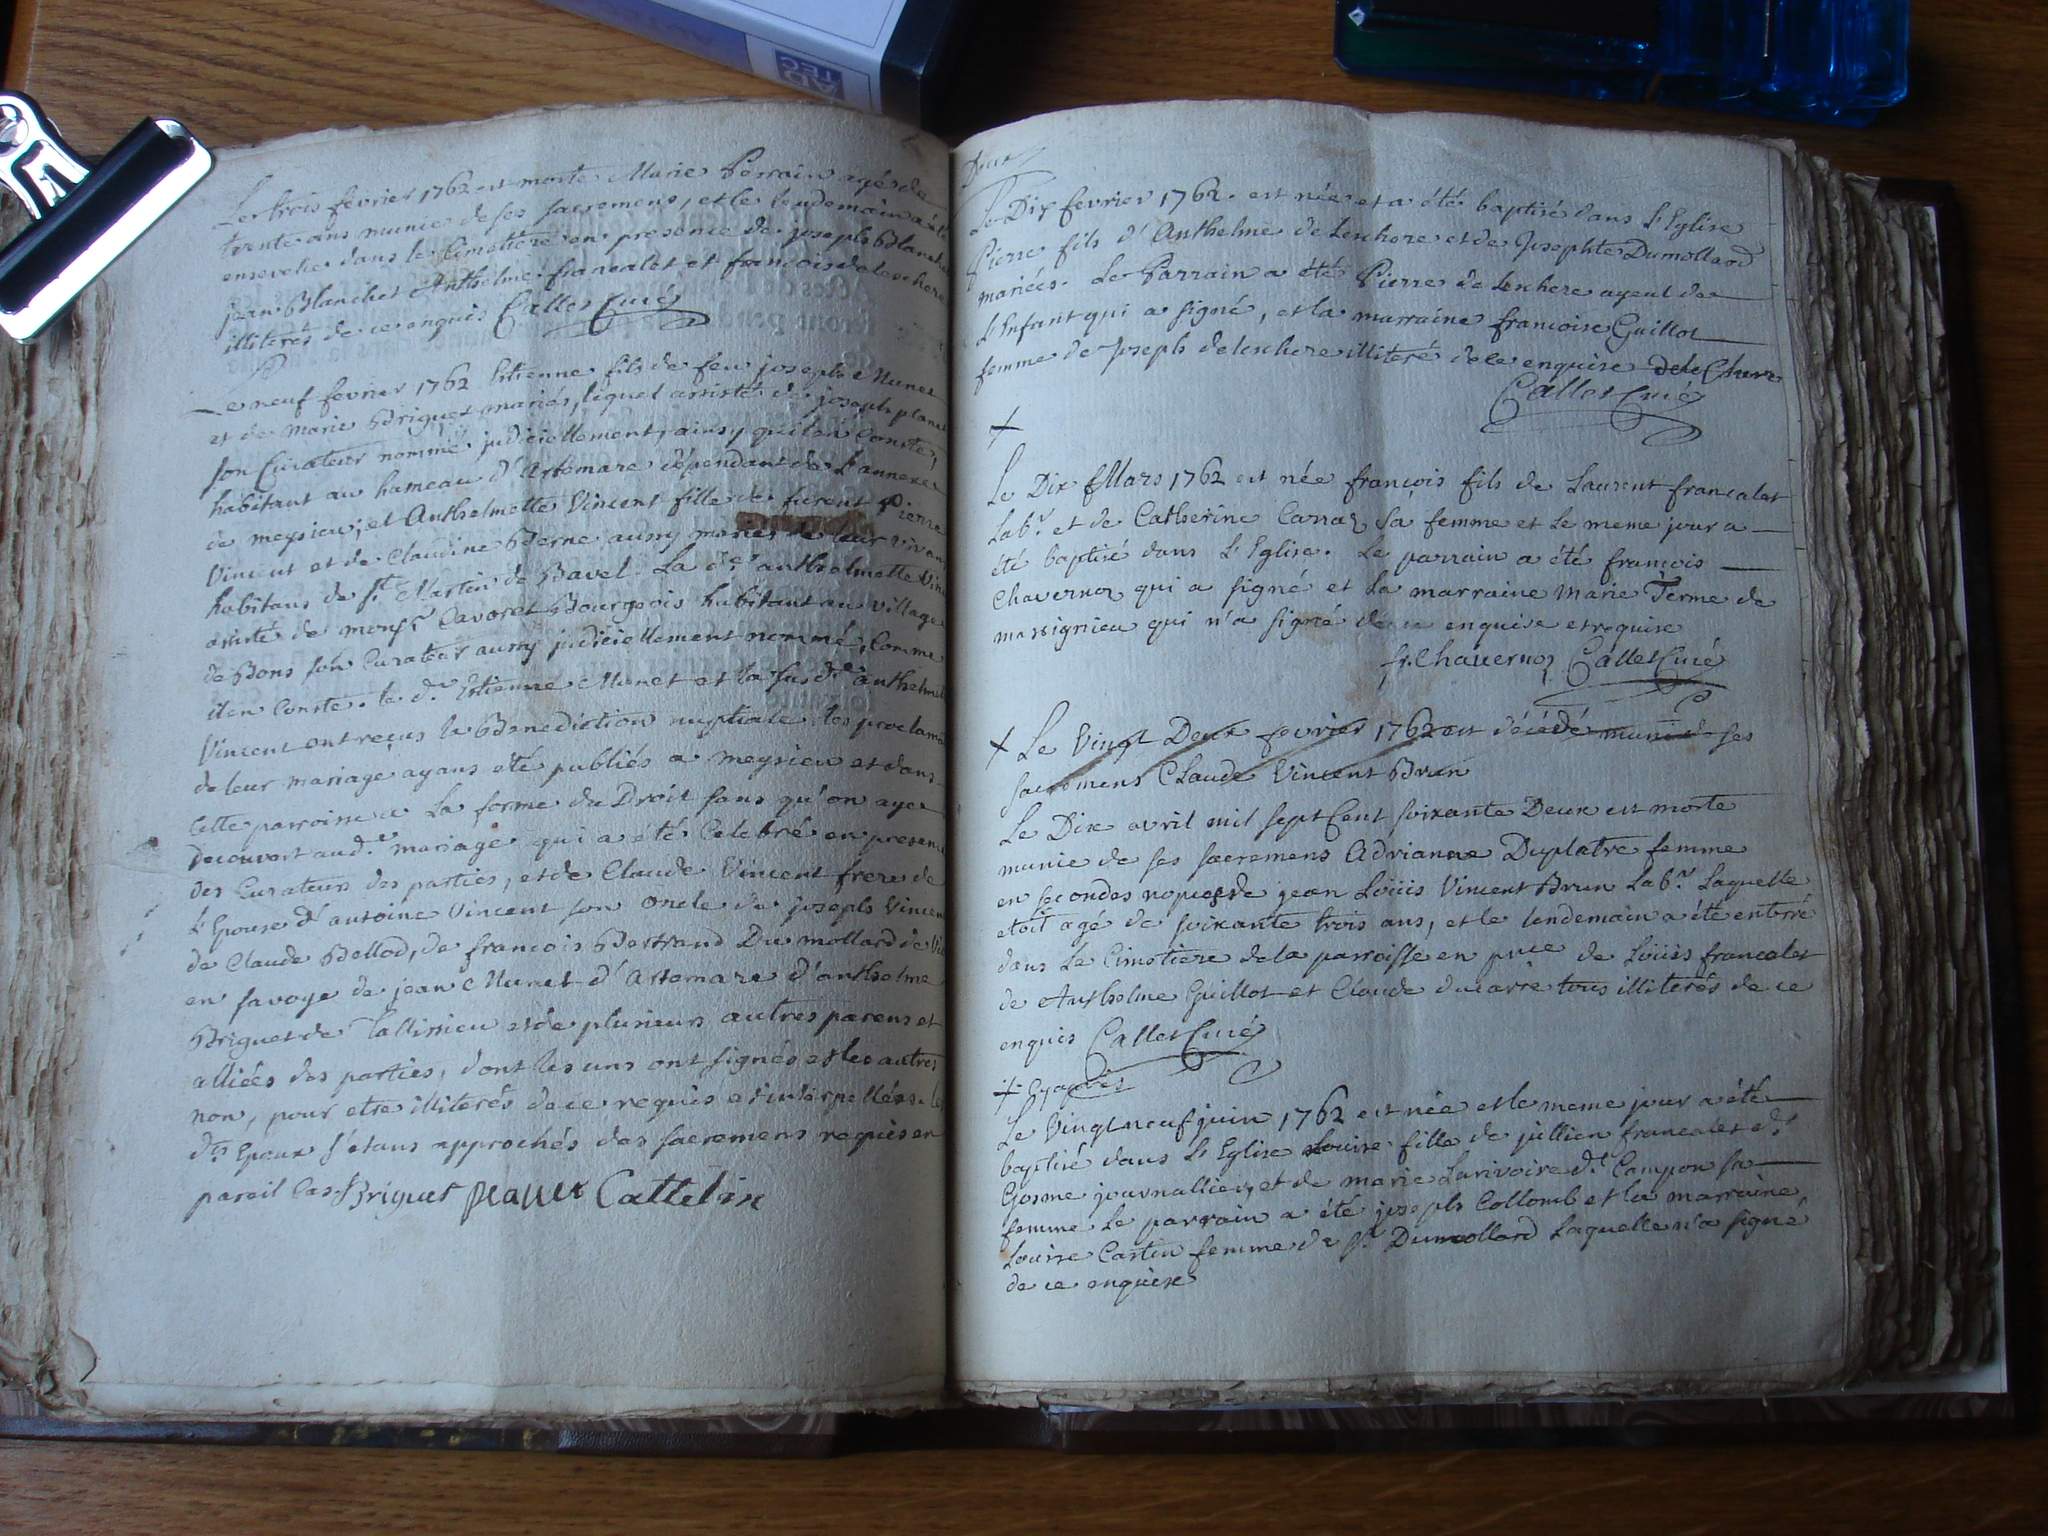 Le trois février 1762 est morte Marie Perrain agée de
trente ans munie de ses sacremens, et le lendemain a été
ensevelie dans le Cimetiere en presence de joseph Blanchet
jean Blanchet Anthelme francalet et francois delechere
illiterés de ce enquis Callet Curé
Le neuf fevrier 1762 Estienne fils de feu joseph Munet
et de Marie Briguet mariés, liquel assisté de joseph planet
son Curateur nommé judiciellement, ainsy quil en Conste,
habitant au hameau d'Artemare dépendant de L'annexe
de meysieu; et Anthelmette Vincent fille de furent Pierre
Vincent et de Claudine Berne aussy mariés de leur vivant
habitans de St Martin de Bavel. La dte anthelmette Vinc
assisté de monsr Cavoret Bourgeois habitant au village
de Bons son Curateur aussy judiciellement nommé, Comme
il en Conste. le dt Estienne Munet et la susdte anthelmet
Vincent ont reçus la Benediction nuptiale, les proclama
de leur mariage ayans eté publiés a meysieu et dans
Cette parroisse a La forme du Droit sans qu'on aye
decouvert aud.t mariage qui a été Celebré en presen
des Curateurs des parties, et de Claude Vincent frere de
L'Epouse d'antoine Vincent son Oncle de joseph Vincen
de Claude Bellod, de francois Bertrand Dumollard de
en savoye de jean Munet d'Artemare d'anthelme
Briguet de Tallissieu et de plusieurs autres parens et
alliées des parties, dont les uns ont signés et les autres
non, pour etre illiterés de ce requis et interpellés. les
dts Epoux s'étans approchés des sacremens requis en
pareil Cas Briguet planet Cattelin
Le Dix fevrier 1762. est née et a été baptisé dans L'Eglise
Pierre fils d'Anthelme de Leschere et de Josephte Dumollard
mariés. Le Parrain a été Pierre de Leschere ayeul de
L'Enfant qui a signé, et la marraine francoise Guillot
femme de Joseph deleschere illiteré de ce enquise deleChere
Callet Curé
Le Dix Mars 1762 est née françois fils de Laurent francalet
Labr. et de Catherine Carraz sa femme et le meme jour a
été baptisé dans L'Eglise. Le parrain a été françois
Chavernoz qui a signé et la marraine Marie Terme de
massignieu qui n'a signé de ce enquise et requise
fr. Chavernoz Callet Curé
+ Le Vingt Deux fevrier 1762 est décédé muni de ses
sacremens Claude Vincent Brun
Le Dix avril mil sept Cent soixante Deux est morte
munie de ses sacremens Adrianne Duplatre femme
en secondes nopces de jean Loüis Vincent Brun Labr. Laquelle
etoit agé de soixante trois ans, et le lendemain a été enterré
dans Le Cimetiere de la parroisse en pnce de Loüis francalet
de Anthelme Guillot et Claude ducarre tous illiterés de ce
enquis Callet Curé
+
Le Vingt neuf juin 1762 est née et le meme jour a été
baptisé dans L'Eglise Louise fille de jullien francalet dt
Gosme journallier, et de marie Larivoire dt Campon sa
femme Le parrain a été joseph Collomb et la marraine
Louise Castin femme de Sr Dumollard Laquelle n'a signé
de ce enquise
AD
TEC